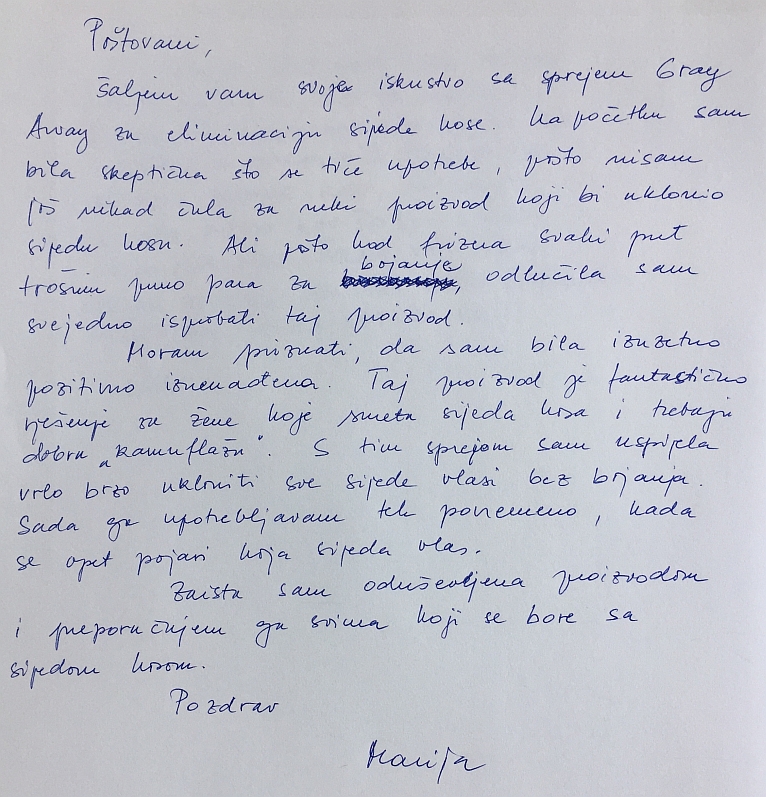 Poštovani,
šaljem vam svoje iskustvo sa sprejem Gray
Away za eliminaciju sijede kose. Na početku sam
bila skeptična što se tiče upotrebe, pošto nisam
još nikad čula za neki proizvod koji bi uklonio
sijedu kosu. Ali pošto kod frizera svaki put
trošim puno para za bojanje, odlučila sam
svejedno isprobati taj proizvod.
Moram priznati, da sam bila izuzetno
pozitivno iznenađena. Taj proizvod je fantastično
rješenje za žene koje smeta sijeda kosa i trebaju
dobru „kamuflažu". S tim sprejom sam uspjela
vrlo brzo ukloniti sve sijede vlasi bez bojanja.
Sada ga upotrebljavam tek povremeno, kada
se opet pojavi koja sijeda vlas.
Zaista sam oduševljena proizvodom
i preporučujem ga svima koji se bore sa
sijedom kosom.
Pozdrav
Marija